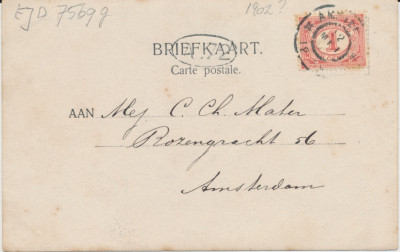 EJD 7569g
1902?
BRIEFKAART.
Carte postale.
1
AAN Mej C. Ch. Mater
Rozengracht 56
Amsterdam